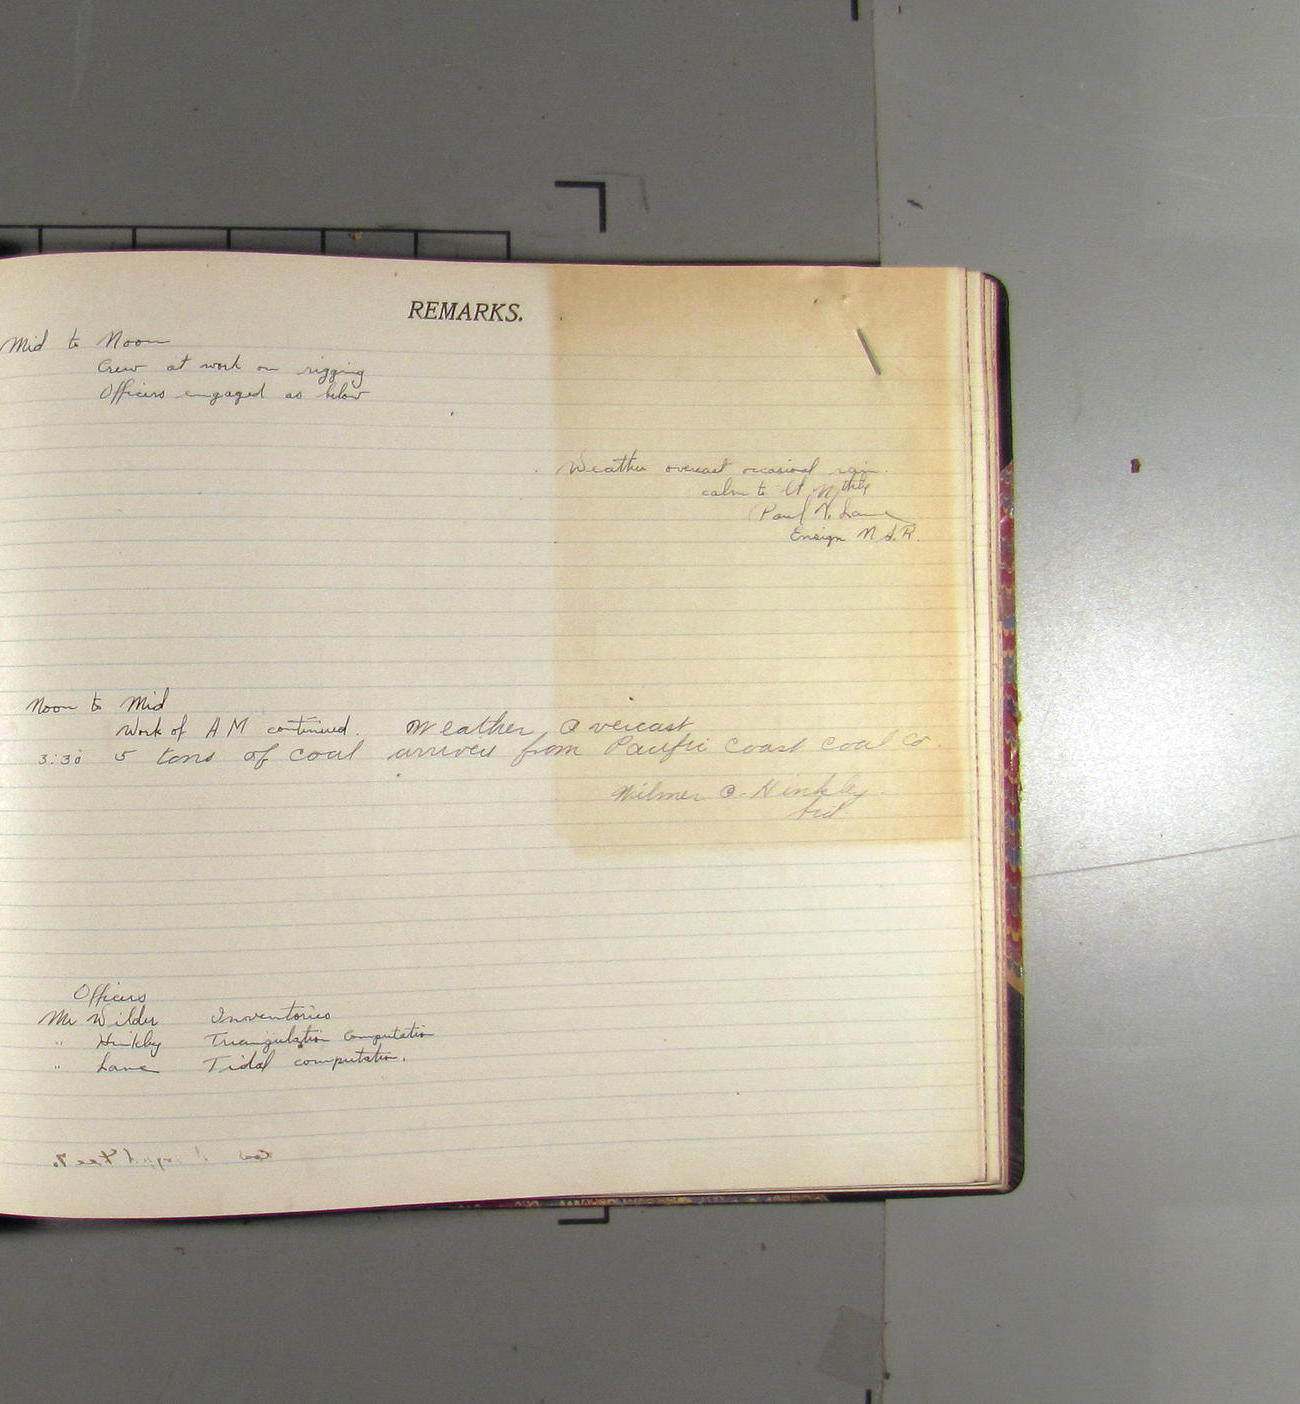 REMARKS.
Mid to Noon
Crew at work on rigging
Officers engaged as below
Weather overcast occasional rain.
calm to lt. N'thly
Paul V. Lane
Ensign N.A.R.
Noon to Mid
Work of A M continued. Weather, Overcast
3:30 5 tons of coal arrived from Pacific Coast Coal Co.
Wilmer O. Hinkley
Aid
Officers
Mr Wilder Inventories
" Hinkley Triangulation Computation
" Lane Tidal computation.